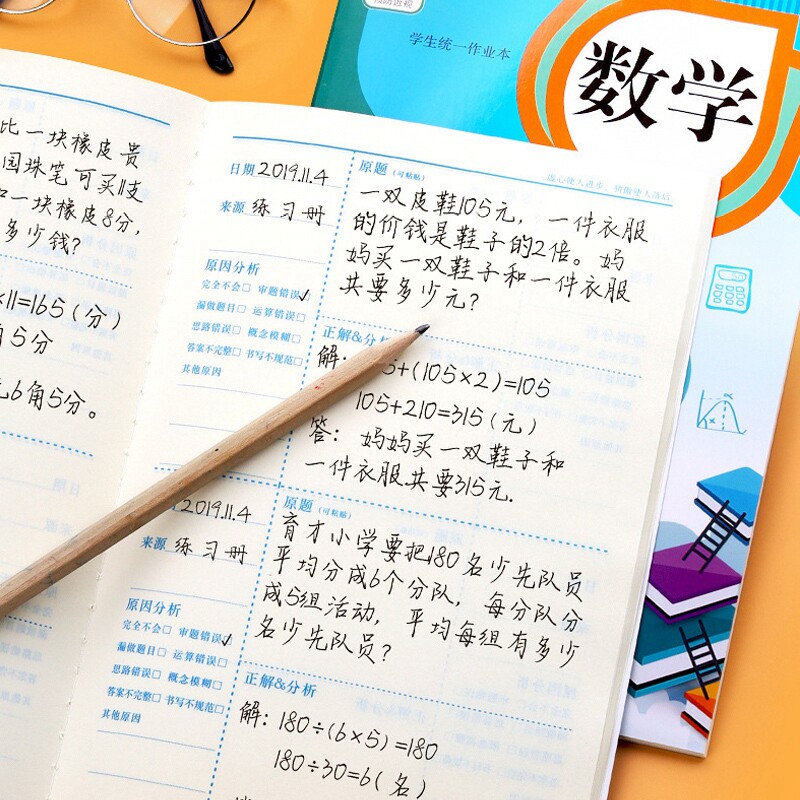 学生统一作业本
数学
比一块橡皮贵
园珠笔可买11支
和一块橡皮8分，
多少钱？
×11=165（分）
角5分
元6角5分。
虚心使人进步，骄傲使人落后
日期 2019.11.4
来源 练习册
原因分析
完全不会□ 审题错误☑
漏做题目□ 运算错误□
思路错误□ 概念模糊□
答案不完整□ 书写不规范□
其他原因
原题（可粘贴）
一双皮鞋105元，一件衣服
的价钱是鞋子的2倍。妈
妈买一双鞋子和一件衣服
共要多少元？
正解&分析
解：
5+(105×2)=105
105+210=315（元）
答：妈妈买一双鞋子和
一件衣服共要315元.
2019.11.4
来源 练习册
原因分析
完全不会□ 审题错误☑
漏做题目□ 运算错误□
思路错误□ 概念模糊□
答案不完整□ 书写不规范□
其他原因
原题（可粘贴）
育才小学要把180名少先队员
平均分成6个分队，每分队分
成5组活动，平均每组有多少
名少先队员？
正解&分析
解：180÷(6×5)=180
180÷30=6（名）